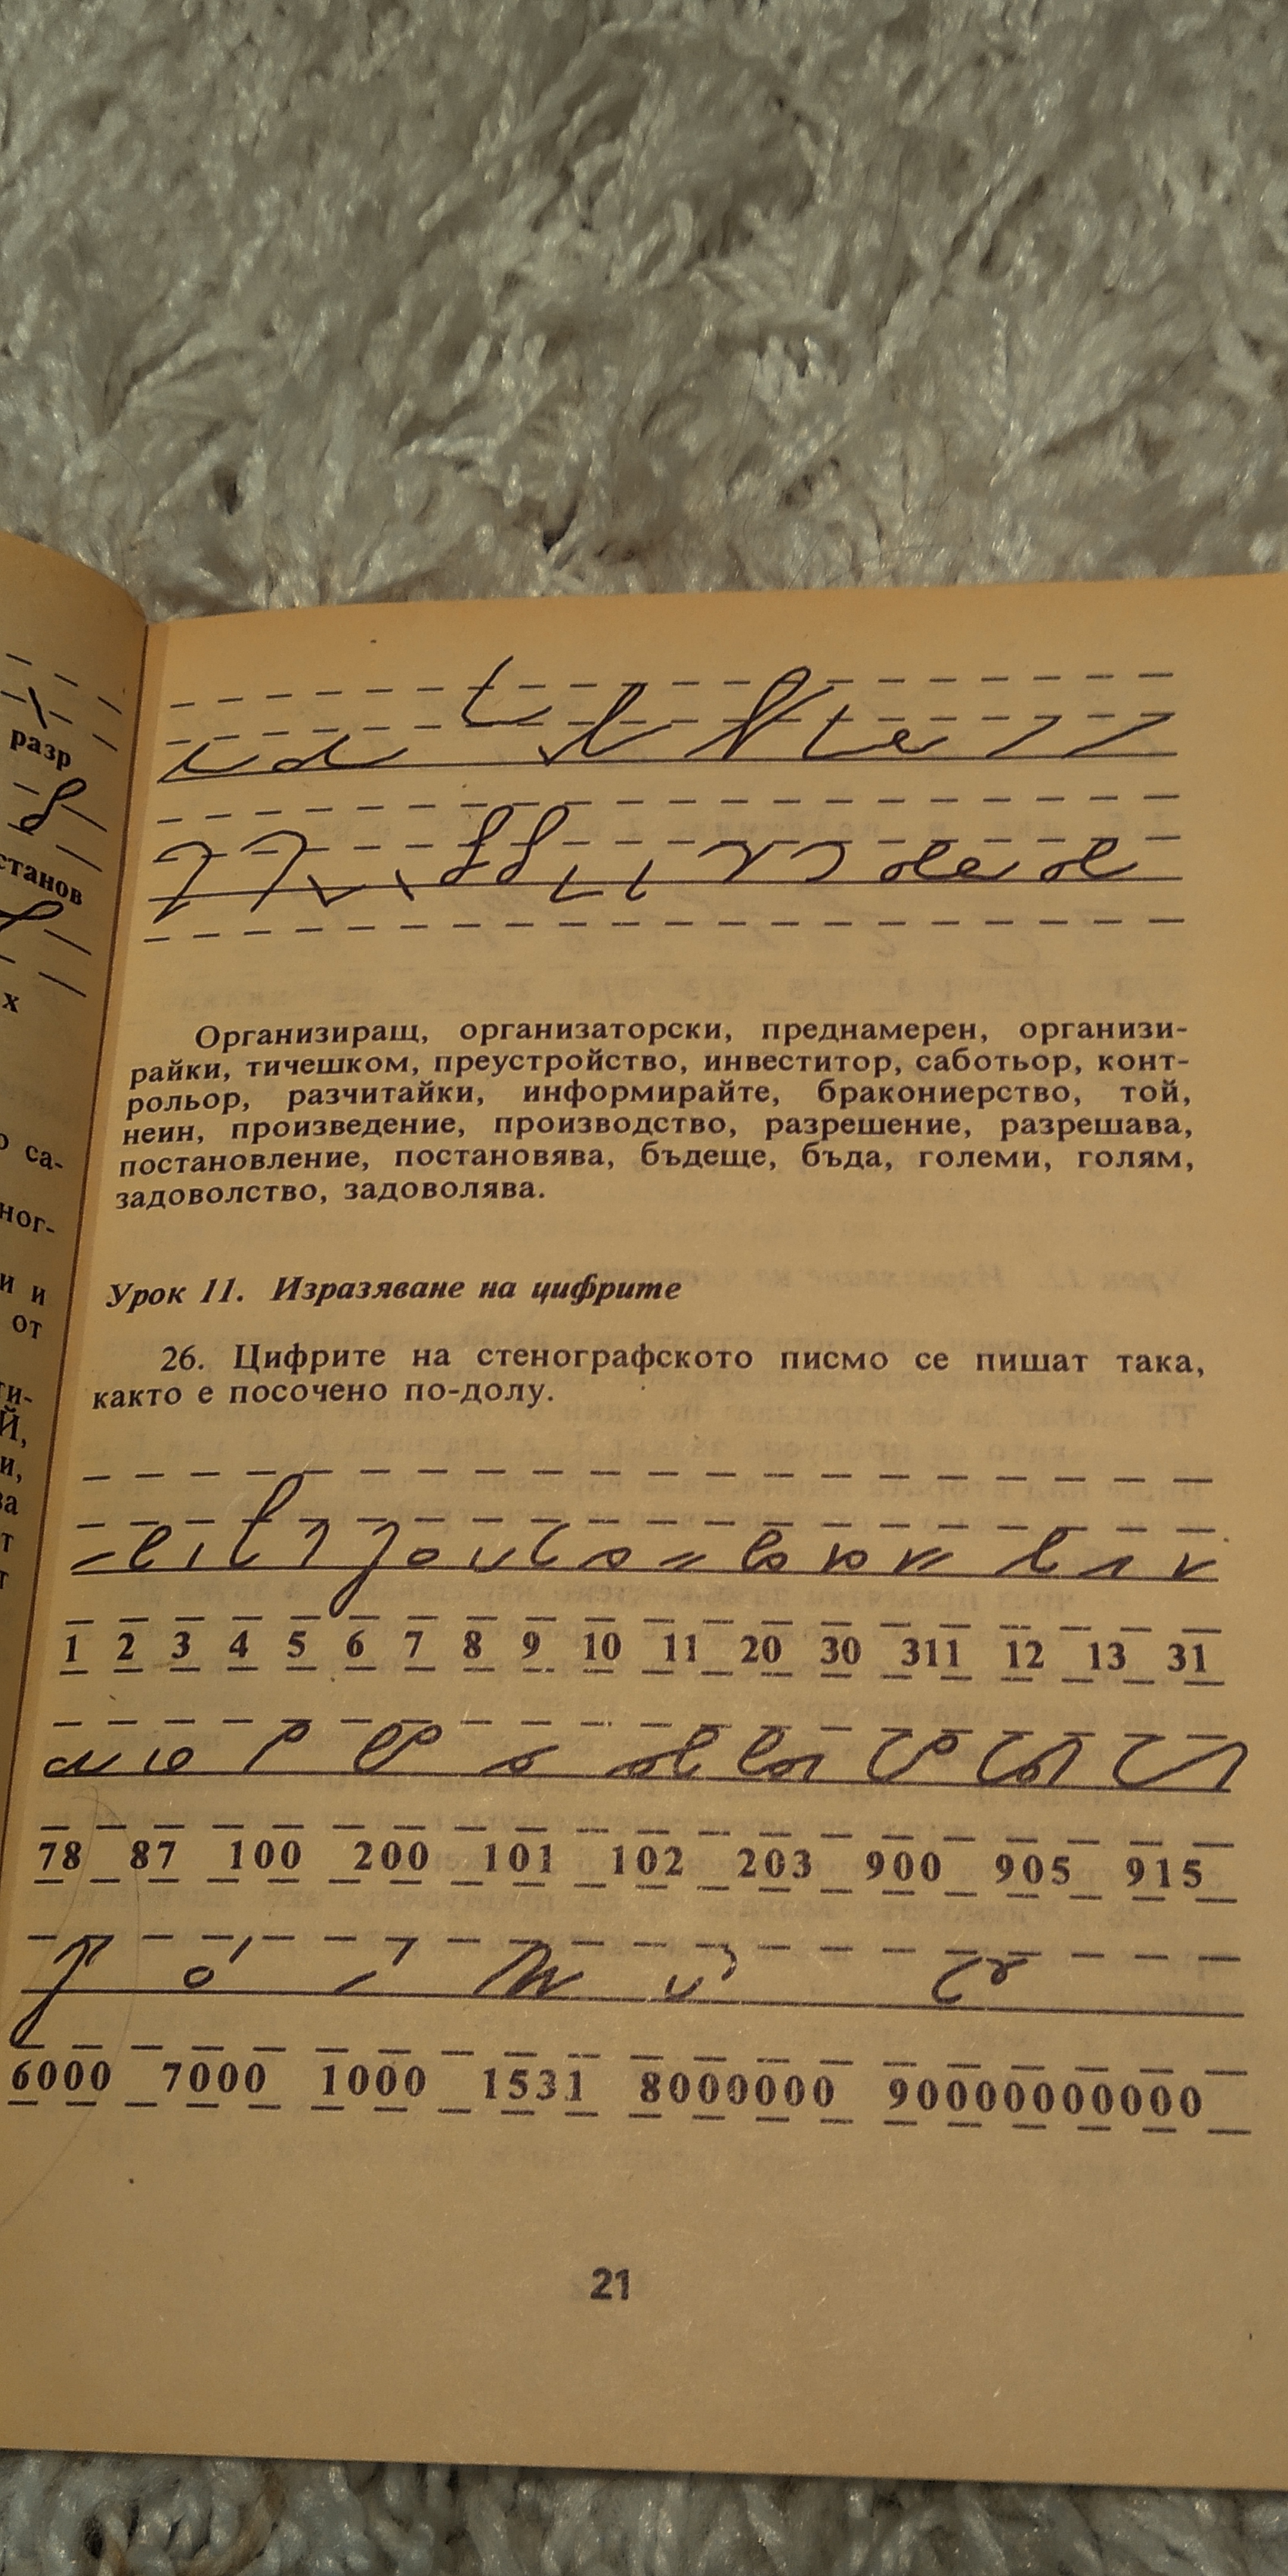 разр
станов
х
о са-
ног-
и и
от
ти-
Й,
и,
ва
т
т
Организиращ, организаторски, преднамерен, организи-
райки, тичешком, преустройство, инвеститор, саботьор, конт-
рольор, разчитайки, информирайте, бракониерство, той,
неин, произведение, производство, разрешение, разрешава,
постановление, постановява, бъдеще, бъда, големи, голям,
задоволство, задоволява.
Урок 11. Изразяване на цифрите
26. Цифрите на стенографското писмо се пишат така,
както е посочено по-долу.
1 2 3 4 5 6 7 8 9 10 11 20 30 311 12 13 31
78 87 100 200 101 102 203 900 905 915
6000 7000 1000 1531 8000000 90000000000
21